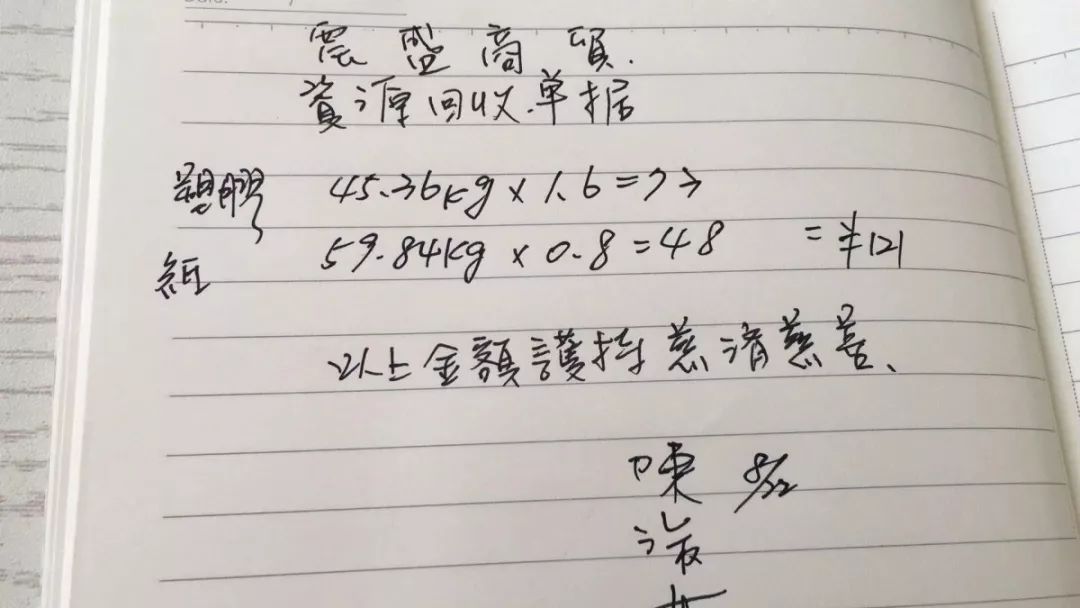 震盛商頭.
資源回收单据
塑膠 45.36kg × 1.6 = 73
紙 59.84kg × 0.8 = 48 = ¥121
以上金額護持慈済慈善、
陳 8/22